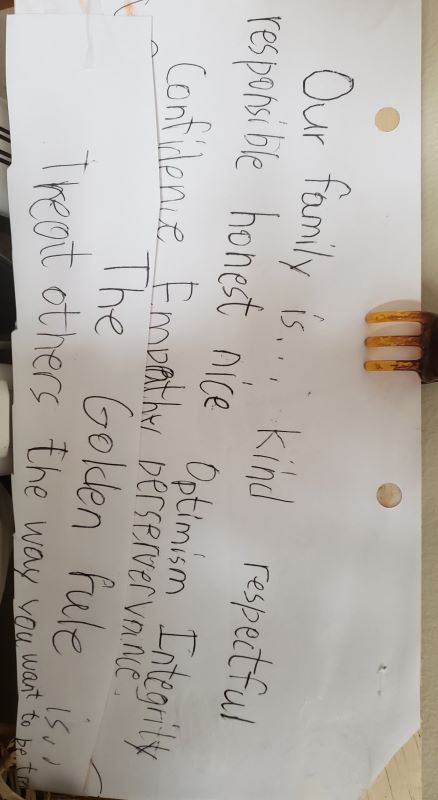 Our family is... kind
responsible honest nice respectful
Confidence Empathy Optimism Integrity
perservervance.
The Golden rule is..
Treat others the way you want to be